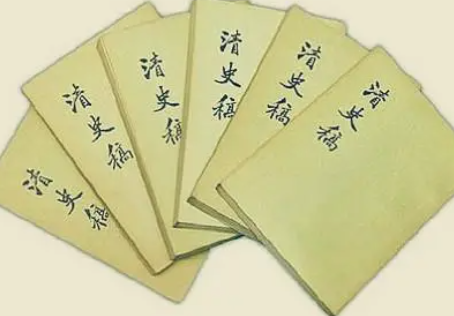 清史稿
清史稿
清史稿
清史稿
清史稿
清史稿